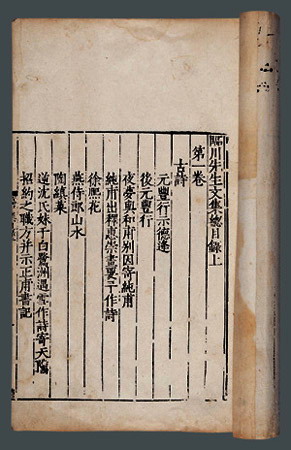 臨川先生文集總目錄上
第一卷
古詩
元豐行示德逢
後元豐行
夜夢與和甫別因寄純甫
純甫出釋惠崇畫要予作詩
徐熙花
燕侍郎山水
陶縝菜
逆沈氏妹于白鷺洲遇雪作詩寄天隲
招約之職方并示正甫書記